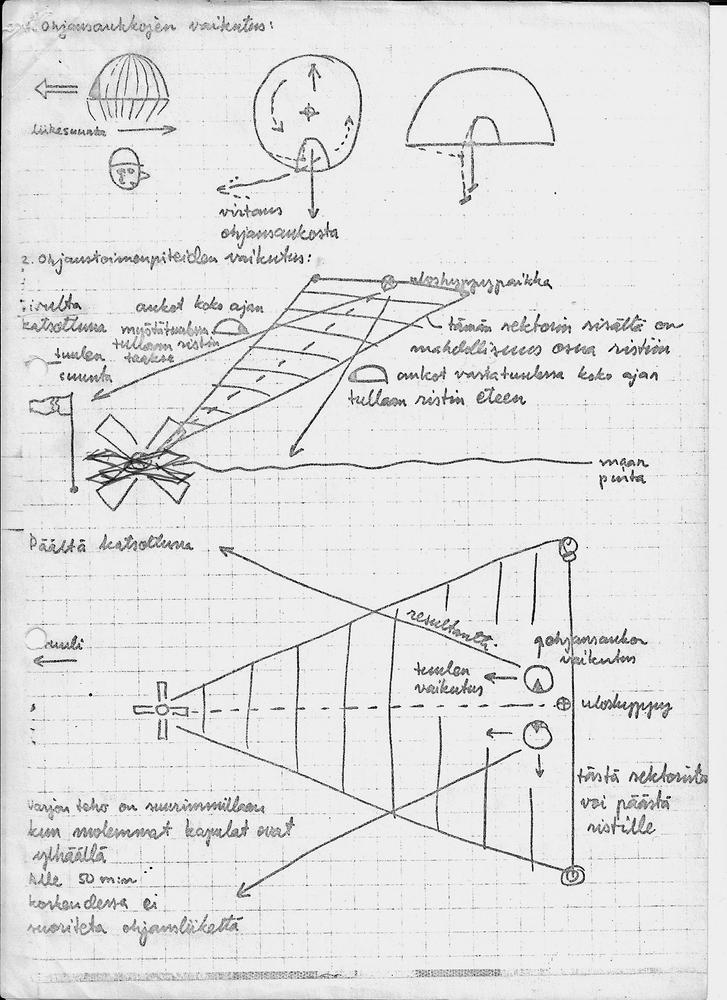 ohjausaukkojen vaikutus:
liikesuunta
virtaus
ohjausaukosta
2. ohjaustoimenpiteiden vaikutus:
sivulta
katsottuna
aukot koko ajan
myötätuulessa
tullaan ristin
taakse
uloshyppypaikka
tuulen
suunta
tämän sektorin sisältä on
mahdollisuus osua ristiin
aukot vastatuulessa koko ajan
tullaan ristin eteen
maan
pinta
Päältä katsottuna
tuuli
resultantti
ohjausaukon
vaikutus
tuulen
vaikutus
uloshyppy
tästä sektorista
voi päästä
ristille
varjon teho on suurimmillaan
kun molemmat kapulat ovat
ylhäällä
Alle 50 m:n
korkeudessa ei
suoriteta ohjausliikettä